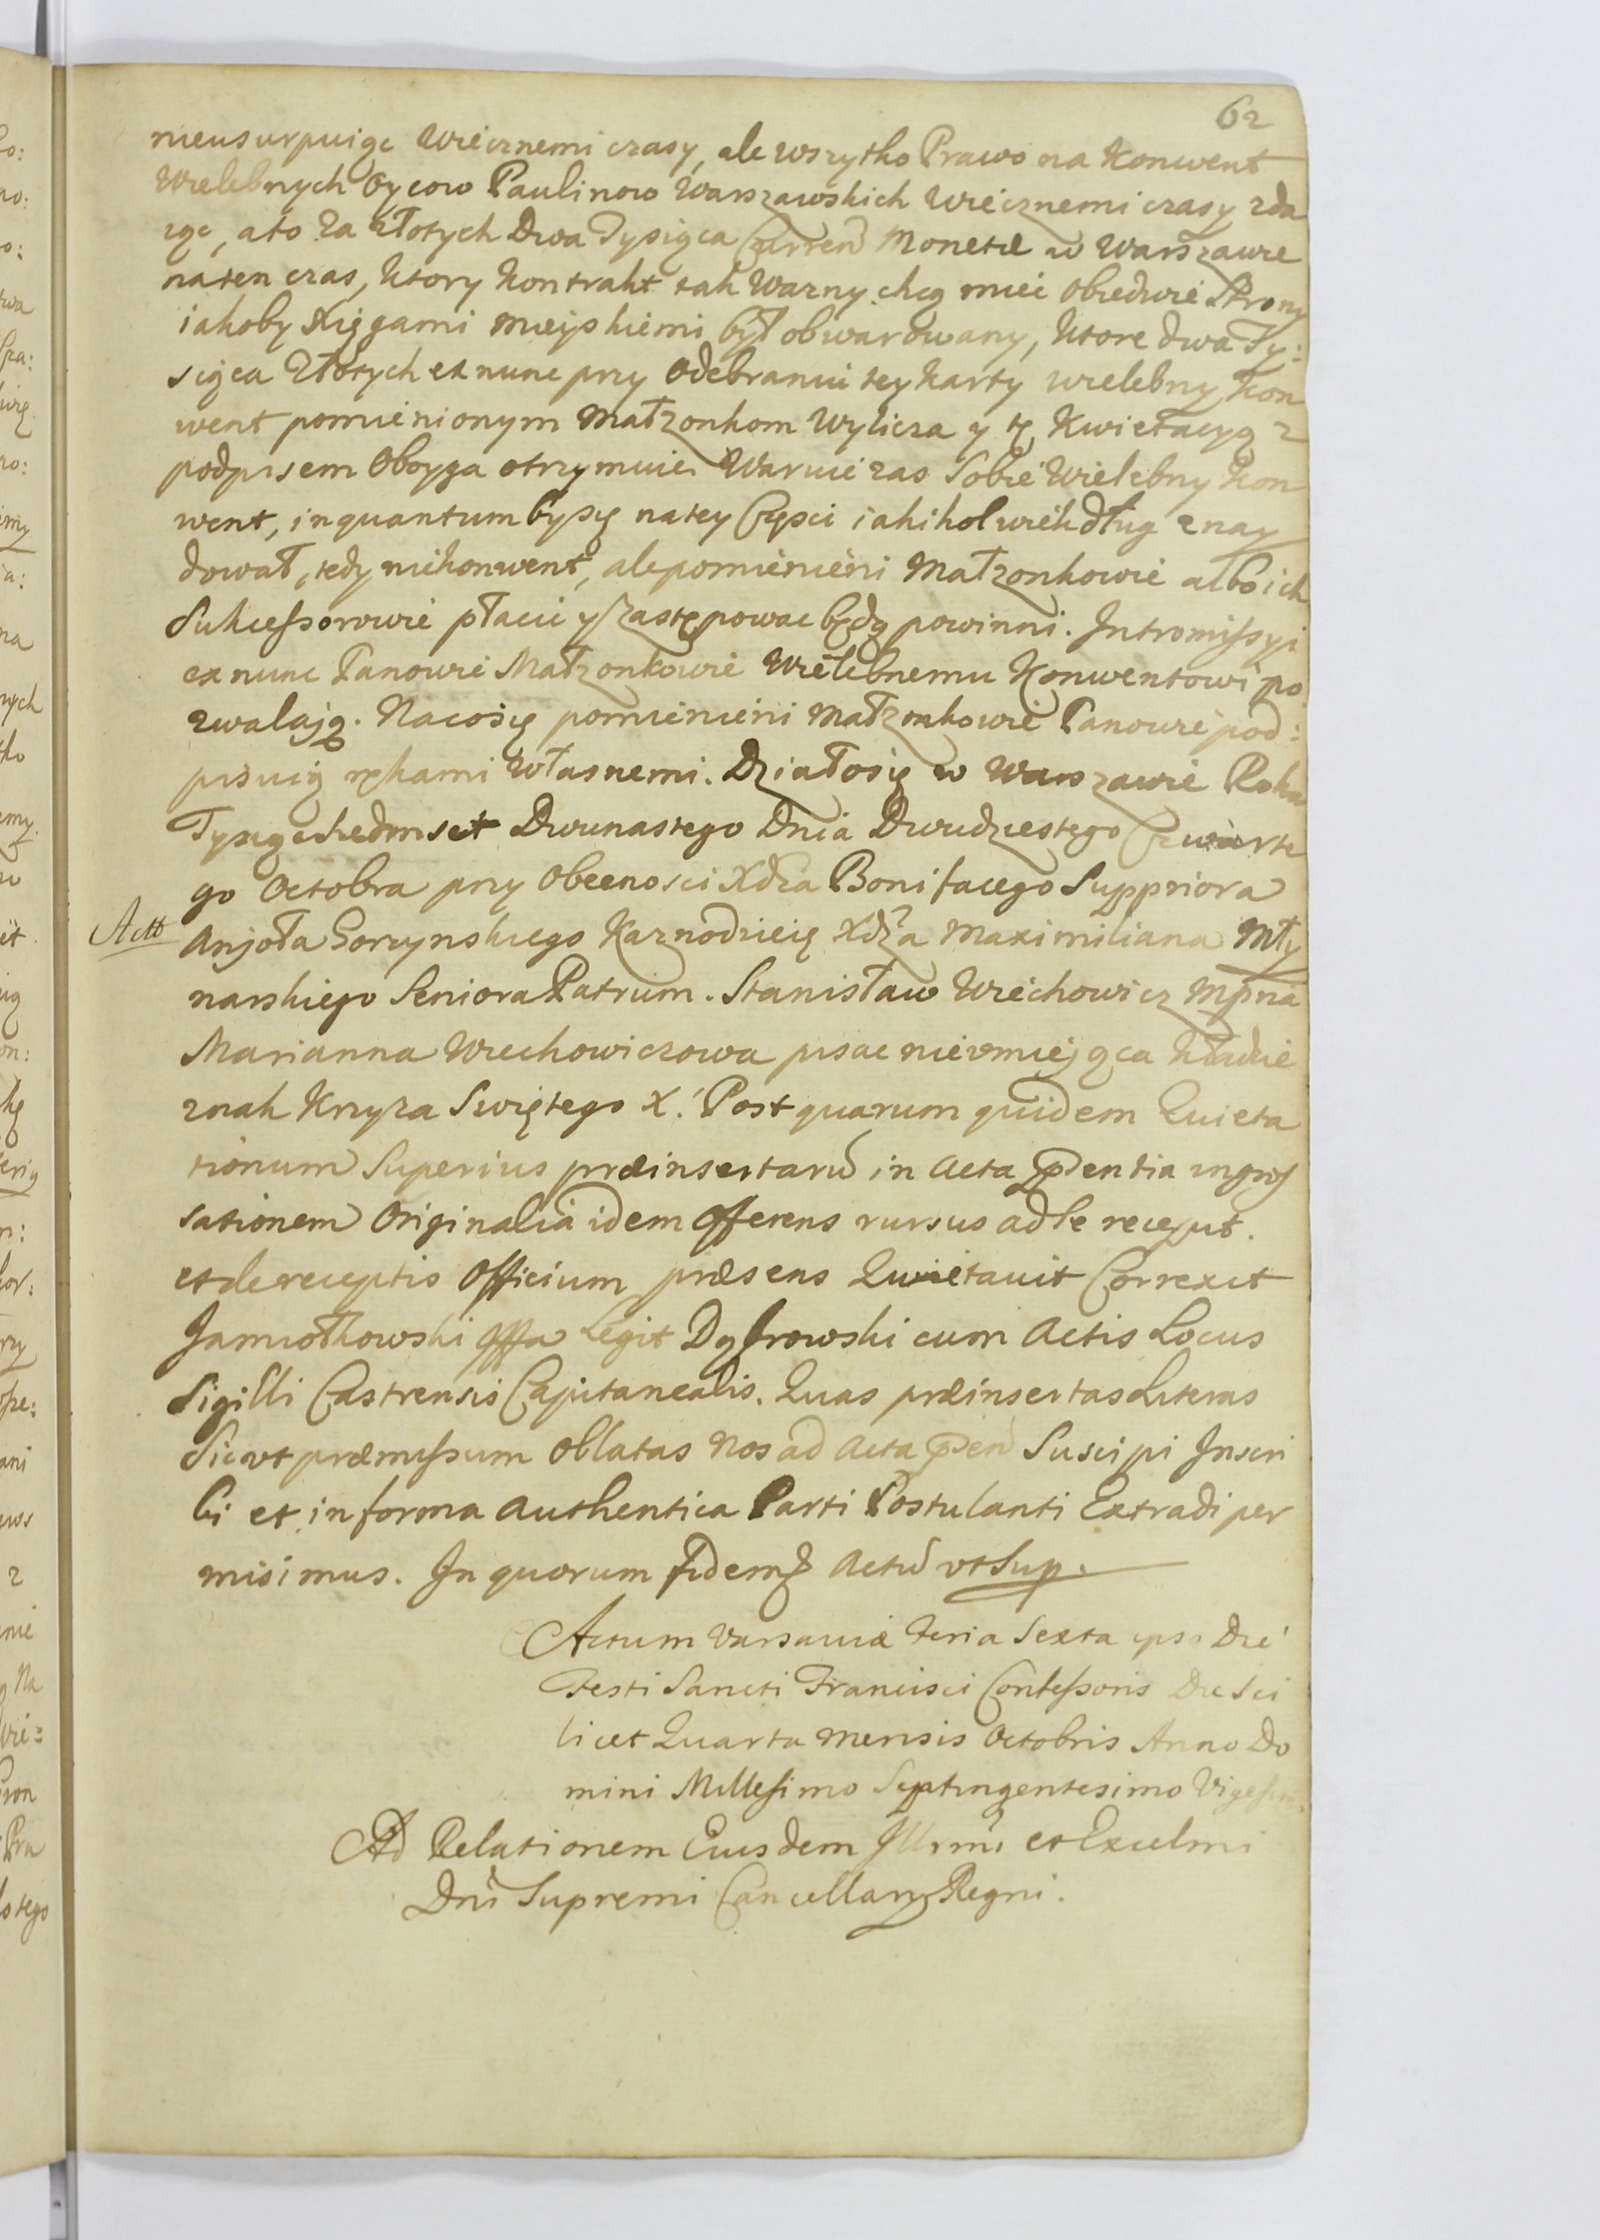 62
nieusurpuiąc Wiecznemi czasy, ale wszytko Prawo na Konwent
Wielebnych Oycow Paulinow Warszawskich Wiecznemi czasy zda
iąc, ato za Złotych Dwa Tysiąca Curren Monetæ w Warszawie
naten czas, ktory Kontrakt tak Wazny chcą mieć obiedwie Strony
iakoby Xięgami mieyskiemi był obwarowany, ktore dwa Ty:
siąca Złotych ex nunc przy Odebraniu tey Karty wielebny Kon
went pomienionym Małzonkom Wylicza y tę Kwietacyą z
podpisem Oboyga otrzymuie. Waruie zas Sobie Wielebny Kon
went, inquantum by się natey Częsci iakikolwiek dług znay
dował, tedy nie konwent, ale pomienieni Małzonkowie albo ich
Sukcessorowie płacić y Zastępowac będą powinni. Intromissyi
ex nunc Panowie Małzonkowie Wielebnemu Konwentowi po
zwalają. Nacosię pomienieni Małzonkowie Panowie pod:
pisuią rękami Własnemi. Działosię w Warszawie Roku
Tysiąc siedmset Dwunastego Dnia Dwudziestego Czwarte
go Octobra przy Obecnosci Xdza Bonifacego Suppriora
Anjoła Gorzynskiego Kaznodzieię Xdza Maximiliana Mły
narskiego Seniora Patrum. Stanisław Wiechowicz Mpria
Marianna Wiechowiczowa pisac nieumiejąca kładzie
znak Krzyza Swiętego X. Post quarum quidem Quieta
tionum Superius præinsertarū in Acta ꝓsentia ingros
sationem Originalia idem Offerens rursus ad se recepit.
et de receptis Officium præsens Quietauit Correxit
Jamiołkowski Legit Dąbrowski cum Actis Locus
Sigilli Castrensis Capitanealis. Quas præinsertas Literas
Sicut præmissum Oblatas Nos ad Acta ꝓsen Suscipi Inscri
bi et in forma Authentica Parti Postulanti Extradi per
misimus. In quorum fidem Actū ut Sup.
Actum Varsauiæ Feria Sexta ipso Die
Festi Sancti Francisci Confessoris Die Sci
licet Quarta Mensis Octobris Anno Do
mini Millesimo Septingentesimo Vigesimo.
Ad Relationem Eiusdem Illrmi et Excelmi
Dni Supremi Cancellarij Regni.